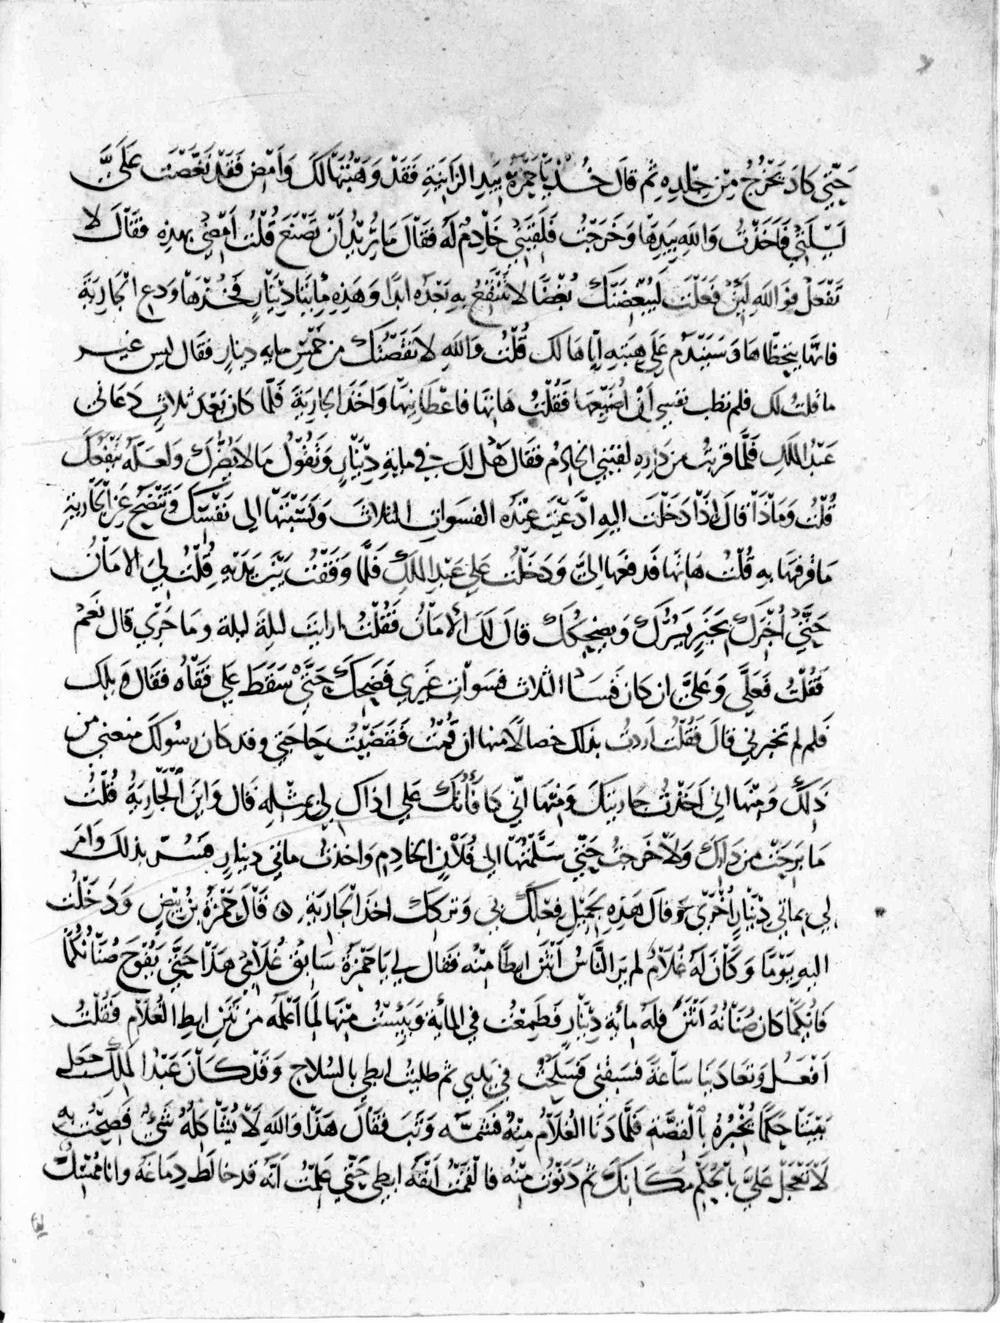 حَتَّى كادَ يَخْرُجُ مِنْ جِلْدِهِ ثُم قالَ خُذْ يَا حَمْزَةُ بِيَدِ الزَّانِيَةِ فَقَدْ وَهَبْتُهَا لَكَ وَأَمْضِ فَقَدْ نَغَّصْتَ عَلَيَّ
لَيْلَتِي فَأَخَذْتُ وَاللهِ بِيَدِهَا وَخَرَجْتُ فَلَقِيَنِي خَادِمٌ لَهُ فَقَالَ مَا تُرِيْدُ أَنْ تَصْنَعَ قُلْتُ أَمْضِي بهذِهِ فقَالَ لا
تَفْعَلْ فوَاللهِ لَئِنْ فَعَلْتَ لَيُبْغِضَنَّكَ بُغْضًا لا تَنْتَفِعُ بِهِ بَعْدَه ابدًا وَهَذِهِ مِائَتَا دِيْنَارٍ فَخُذْهَا وَدعِ الْجَارِيَةَ
فانَّه يَتحظَّاهَا وَسَيَنْدَمُ عَلَى هِبَتِهِ إيَّاهَا لك قُلْتُ وَاللهِ لا نَقَصْتُكَ من خَمْسِ مايةِ دينارٍ فَقَال ليس غير
ما قلتُ لك فلم تطب نفسي أنْ أُضَيِّعهَا فَقُلْتُ هَاتِهَا فاعْطَانِيهَا وَاخَذَ الجَارِيَةَ فَلَمَّا كانَ بَعْدَ ثلاثٍ دَعَانى
عَبْدُ المَلكِ فَلَمَّا قرُبْتُ من دَارِهِ لقيَنِي الخَادِمُ فقَال هَلْ لكَ في مايةِ دِيْنَارٍ وتَقُوْلُ مَا لا يَضُرُّكَ وَلعَلَّهُ يَنْفَعُكَ
قُلْتُ وَمَاذَا قالَ إذَا دَخَلْتَ اليهِ ادَّعَيْتَ عِنْدَه الفسَواتِ الثلاثَ وَنَسَبْتَهَا الى نَفْسِكَ وَتَنْضَحُ عَنِ الْجَارِيَةِ
مَا قَرفتَهَا بِهِ قُلْتُ هَاتِهَا فَدفعَهَا اليَّ وَدَخَلْتُ عَلى عَبْدِ المَلكِ فَلَمَّا وَقَفْتُ بَيْنَ يَدَيْهِ قُلْتُ لِيَ الامَانُ
حَتَّى أُخْبِرَكَ بخَبَرٍ يَسُرُّكَ وَيضحِكُكَ قالَ لكَ الأمَانُ فَقُلْتُ ارايْتَ ليلةَ ليلة ومَا جَرَى قالَ نَعَمْ
فَقُلْتُ فَعَلَيَّ وَعَليَّ ان كان فسَا الثلاث فسَوَاتٍ غيرِي فَضَحِكَ حَتَّى سَقَطَ على قَفَاهُ فقَال وَيلك
فلِم لم تخبرني قالَ فَقُلْتُ اردتُ بذَلكَ خصالًا منها ان قُمْتُ فَقَضَيْتُ حَاجَتي وقد كان رسُولكَ منعَني من
ذَلكَ وَمِنْهَا اني اخذْتُ جَاريتكَ وَمنْهَا أنّي كافَأْتُكَ على اذاك لِي بمثْلِهِ قال وَايْنَ الجَارِيَةُ قُلْتُ
مَا بَرِحَتْ من دَارِكَ وَلا خَرجتُ حَتى سَلَّمْتُهَا الى فُلَانٍ الخادِم وَاخذتُ مائتي دينارٍ فَسُرَّ بذلكَ وَامَرَ
لِي بمائتي دِيْنَارٍ أُخْرَى وَقالَ هَذِهِ لِجَمِيْلِ فعْلِكَ بي وَتركِكَ اخذَ الجَارِيَةِ ۞ قَالَ حَمْزَةُ بْنُ بِيْضٍ وَدَخَلْتُ
اليهِ يَوْمًا وَكَانَ لهُ غُلامٌ لم يَرَ النَّاسُ أَنْتَنَ ابطًا مِنْهُ فقَال لي يَا حَمْزَةُ سَابِقْ غُلَامِيْ هَذَا حَتَّى يَفُوحَ صُنَانُكُمَا
فايُّكمَا كان صُنَانُهُ انْتَنَ فلهُ مايَةُ دِيْنَارٍ فَطَمِعْتُ في المايَةِ وَيَئِسْتُ مِنْهَا لِمَا أعْلَمُهُ مِنْ نَتْنِ ابطِ الغُلَامِ فَقُلْتُ
افعَلُ وَتعَادَيْنَا سَاعَةً فسَبقَني فسَلَحْتُ في يدِي ثم طليتُ ابطِي بالسُّلاحِ وَقَدْ كَانَ عَبْدُ المَلِكِ جعَلَ
بَيْنَنَا حَكَمًا يُخْبِرُهُ بِالْقِصَّةِ فَلَمَّا دَنَا الغُلَامُ مِنْهُ فَشَمَّه وَثَبَ فَقَالَ هَذَا وَاللهِ لَا يُشَاكِلُهُ شَيْءٌ فَصِحْتُ بِهِ
لَا تَعْجَلْ عَلَيَّ بالحُكمِ مَكَانَكَ ثُم دَنَوْتُ مِنْهُ فَالْقَمْتُ أنْفَهُ ابطِي حَتَّى عَلِمْتُ أنَّهُ قد خالَطَ دِمَاغَهُ وَانا مُمْسِكٌ